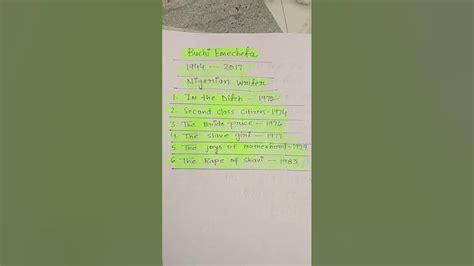 Buchi Emecheta
1944 -- 2017
Nigerian Writer
1. In the Ditch -- 1972
2. Second class citizen - 1974
3. The Bride-price -- 1976
4. The slave girl -- 1977
5. The joys of Motherhood - 1979
6. The Rape of Shavi -- 1983